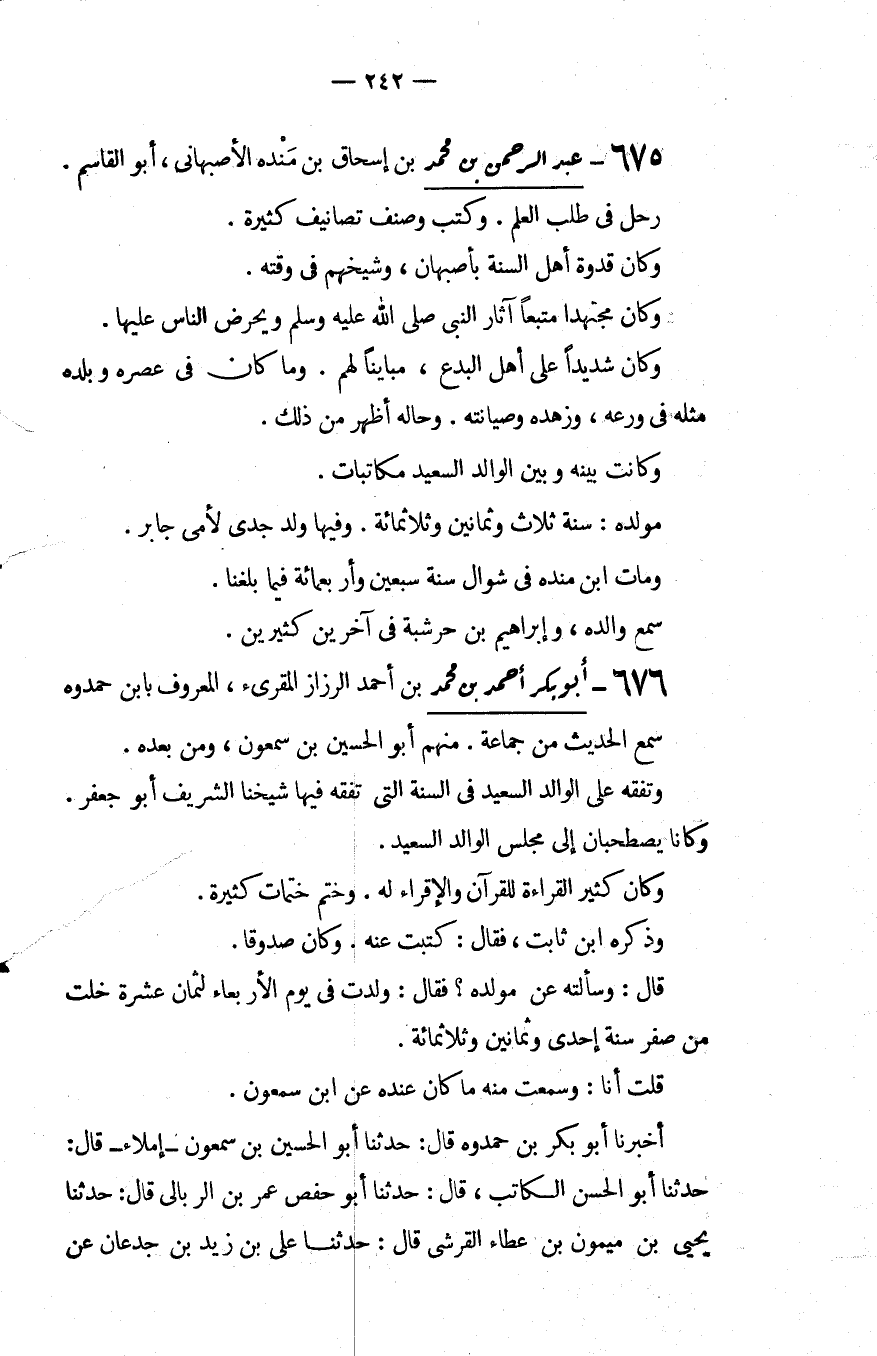 — ٢٤٢ —
٦٧٥ – عبد الرحمن بن محمد بن إسحاق بن مَنْده الأصبهانى ، أبو القاسم .
رحل فى طلب العلم . وكتب وصنف تصانيف كثيرة .
وكان قدوة أهل السنة بأصبهان ، وشيخهم فى وقته .
وكان مجتهدا متبعاً آثار النبى صلى الله عليه وسلم ويحرض الناس عليها .
وكان شديداً على أهل البدع ، مبايناً لهم . وما كان فى عصره وبلده
مثله فى ورعه ، وزهده وصيانته . وحاله أظهر من ذلك .
وكانت بينه وبين الوالد السعيد مكاتبات .
مولده : سنة ثلاث وثمانين وثلاثمائة . وفيها ولد جدى لأمى جابر .
ومات ابن منده فى شوال سنة سبعين وأربعمائة فيما بلغنا .
سمع والده ، وإبراهيم بن حرشبة فى آخرين كثيرين .
٦٧٦ – أبو بكر أحمد بن محمد بن أحمد الرزاز المقرىء ، المعروف بابن حمدوه
سمع الحديث من جماعة . منهم أبو الحسين بن سمعون ، ومن بعده .
وتفقه على الوالد السعيد فى السنة التى تفقه فيها شيخنا الشريف أبو جعفر .
وكانا يصطحبان إلى مجلس الوالد السعيد .
وكان كثير القراءة للقرآن والإقراء له . وختم ختمات كثيرة .
وذكره ابن ثابت ، فقال : كتبت عنه . وكان صدوقا .
قال : وسألته عن مولده ؟ فقال : ولدت فى يوم الأربعاء لثمان عشرة خلت
من صفر سنة إحدى وثمانين وثلاثمائة .
قلت أنا : وسمعت منه ما كان عنده عن ابن سمعون .
أخبرنا أبو بكر بن حمدوه قال : حدثنا أبو الحسين بن سمعون – إملاء – قال :
حدثنا أبو الحسن الكاتب ، قال : حدثنا أبو حفص عمر بن الربالى قال : حدثنا
يحيى بن ميمون بن عطاء القرشى قال : حدثنا على بن زيد بن جدعان عن